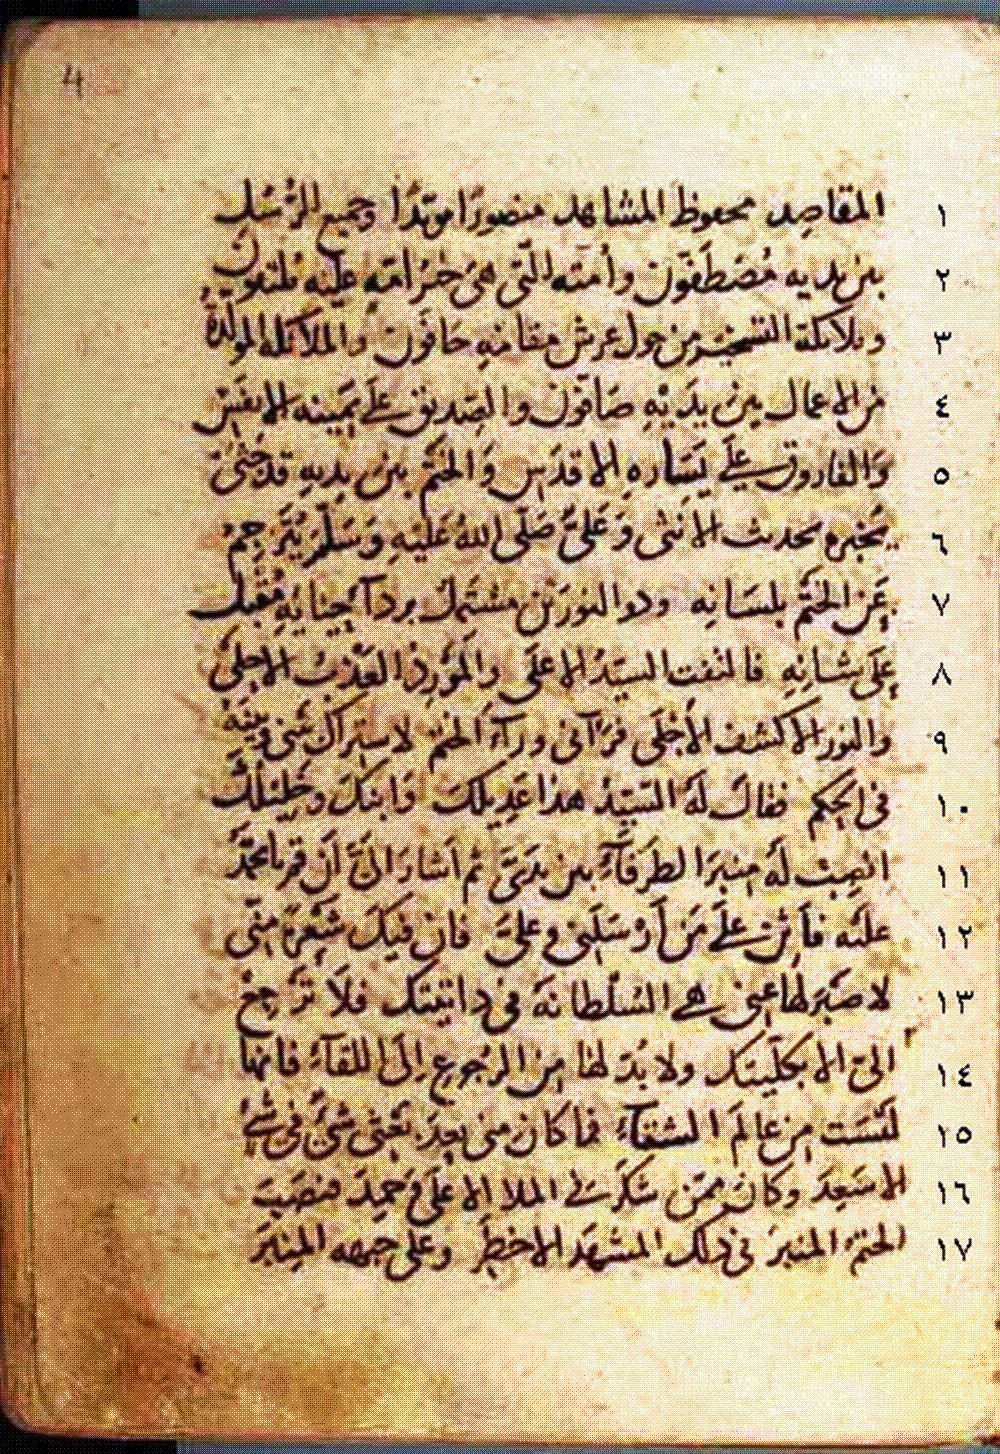 4
المقاصد محفوظ المشاهد منصورا مويدا وجميع الرسل ١
بين يديه مصطفون وامته التي هي خير امة عليه ملتفون ٢
وملائكة التسخير من حول عرش مقامه حافون والملائكة المولدة ٣
من الاعمال بين يديه صافون والصديق على يمينه الانفس ٤
والفاروق على يساره الاقدس والختم بين يديه قد جثى ٥
يخبره بحديث الانثى وعلي صلى الله عليه وسلم يترجم ٦
عن الختم بلسانه وذو النورين مشتمل بردآ حيائه مقبل ٧
على شانه فالتفت السيد الاعلى والمورد العذب الاحلى ٨
والنور الاكشف الاجلى فرآني ورآء الختم لاشتراك بيني وبينه ٩
في الحكم فقال له السيد هذا عديلك وابنك وخليلك ١٠
انصب له منبر الطرفآء بين يدي ثم اشار الي ان قم يا محمد ١١
عليه فاثن على من ارسلني وعلي فان فيك شعرة مني ١٢
لا صبر لها عني هي السلطانة في ذاتيتك فلا ترجع ١٣
الي الا بكليتك ولا بد لها من الرجوع الى اللقآء فانها ١٤
ليست من عالم الشقآء فما كان مني بعد بعثي شيء في شيء ١٥
الا سعد وكان ممن شكر في الملا الاعلى وحمد فنصب ١٦
الختم المنبر في ذلك المشهد الاخطر وعلى جبهه المنبر ١٧